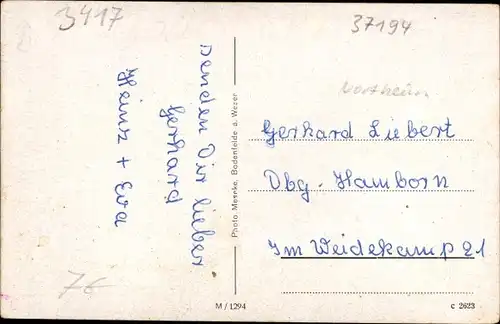 3417
37194
Northeim
Senden Dir lieber
Gerhard
Heinz + Eva
Photo Mesnke, Bodenfelde a. Weser
Gerhard Liebert
Dbg.-Hamborn
Im Weidekamp 21
76
M/1294
c 2623